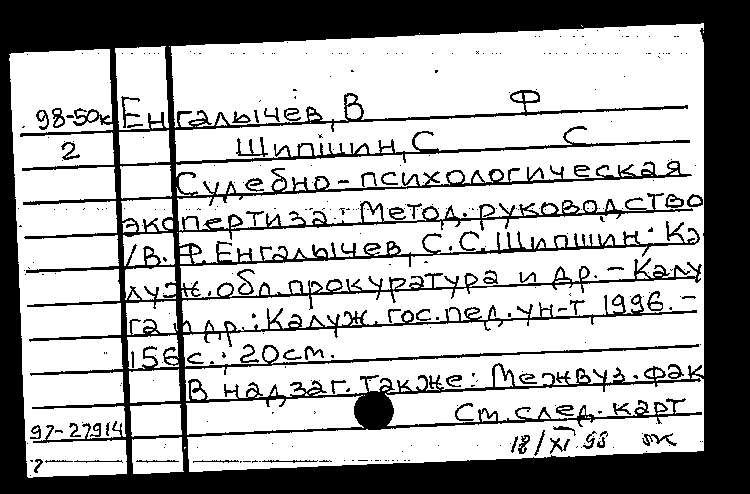 98-50к Енгалычев, В Ф
2 Шипшин, С С
Судебно-психологическая
экспертиза: Метод. руководство
/В. Ф. Енгалычев, С. С. Шипшин; Ка
луж. обл. прокуратура и др. – Калу
га и др.: Калуж. гос. пед. ун-т, 1996. –
156 с.; 20 см.
В надзаг. также: Межвуз. фак
См. след. карт
97-27914
18/XI 98